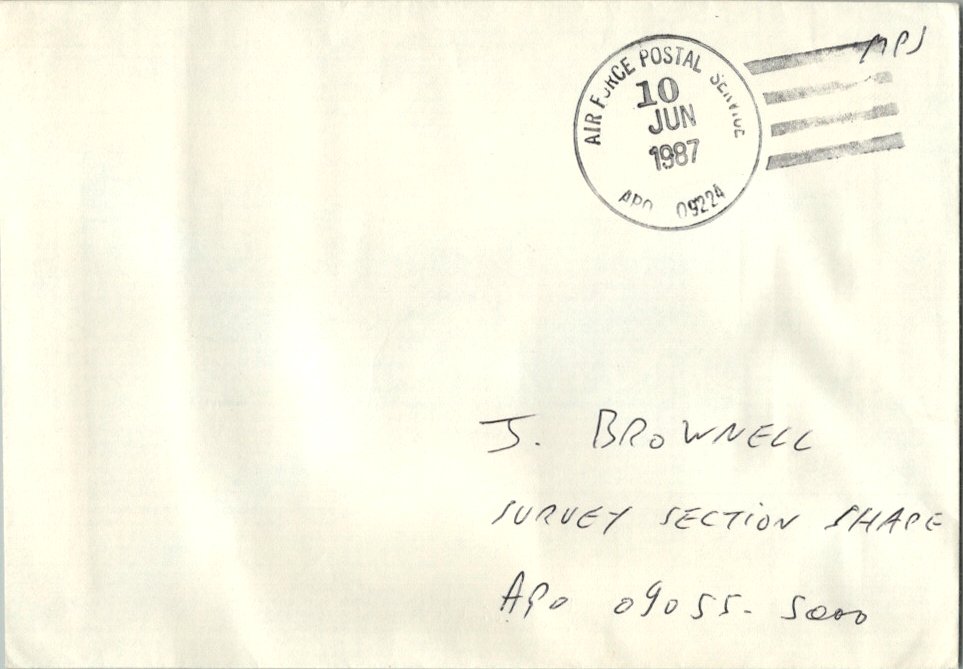 MPS
AIR FORCE POSTAL SERVICE
10
JUN
1987
APO 09224
J. BROWNELL
SURVEY SECTION SHAPE
APO 09055-5000